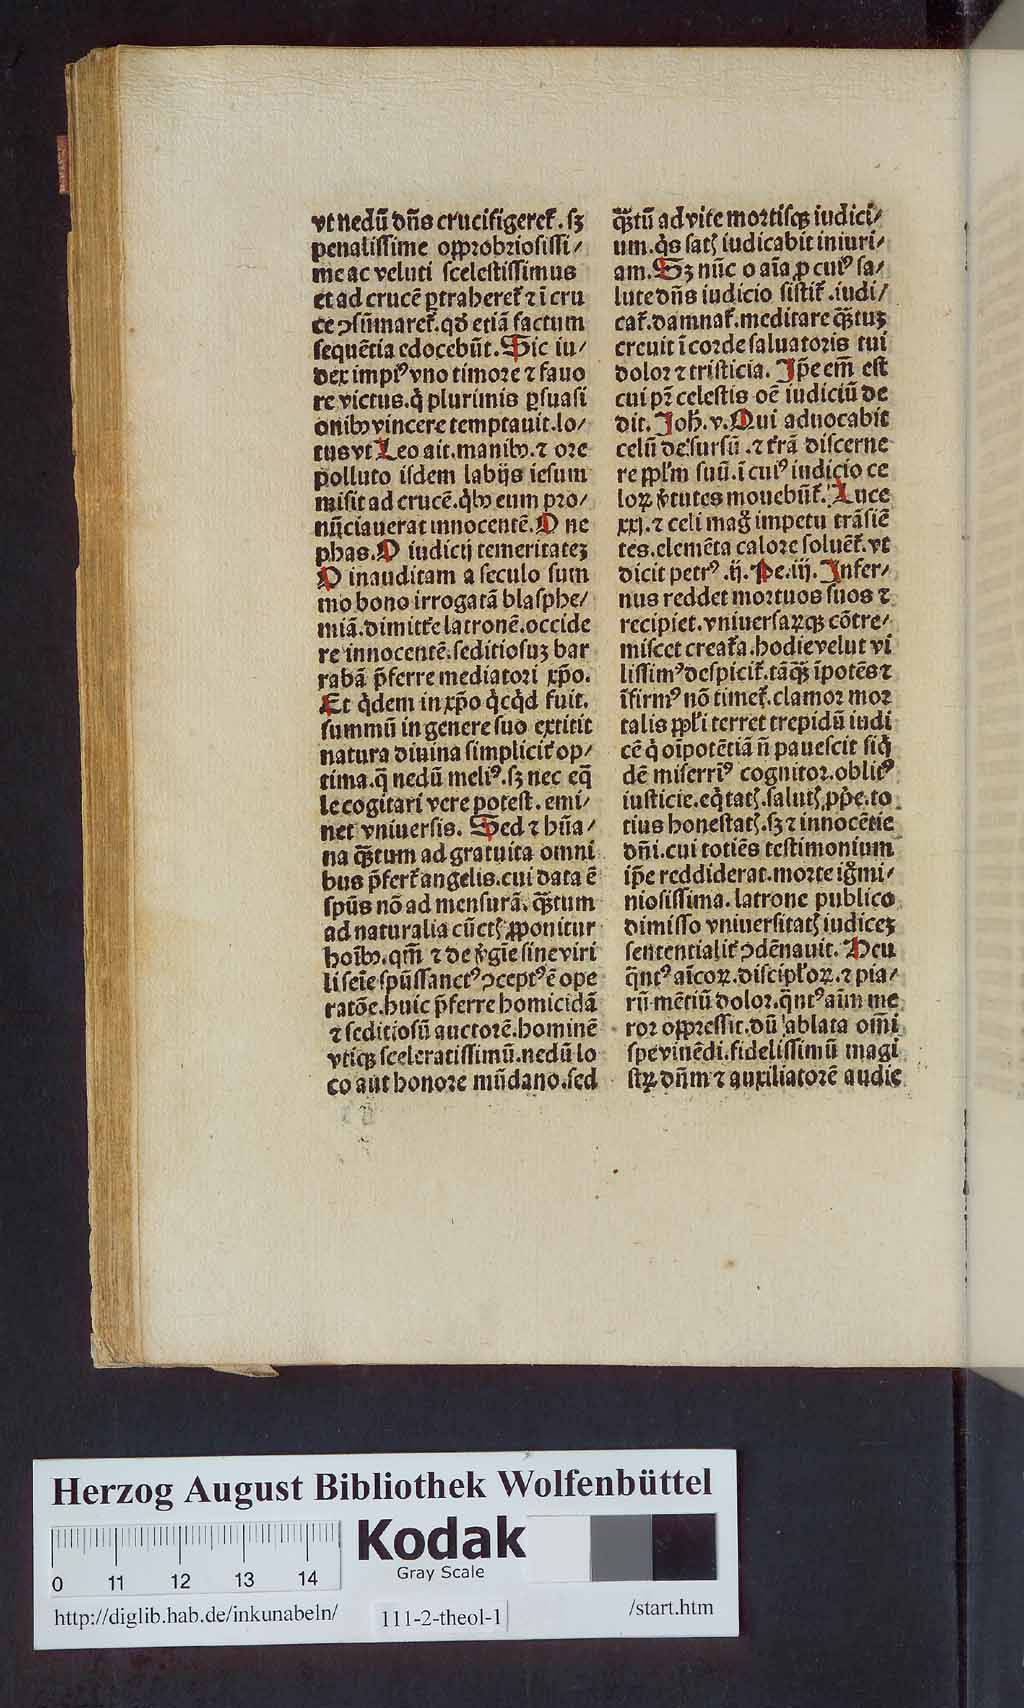 vt nedū dn̄s crucifigeret᷑. sꝫ
penalissime opprobriosissi⸗
me ac veluti scelestissimus
et ad crucē ꝑtraheret᷑ ⁊ ī cru
ce ↄsūmaret᷑. qď etiā factum
sequētia edocebūt. Sic iu⸗
dex impiꝰ vno timore ⁊ fauo
re victus. q̇ plurimis ꝑsuasi
onibꝫ vincere temptauit. lo⸗
tus vt Leo ait. manibꝫ. ⁊ ore
polluto isdem labijs iesum
misit ad crucē. q̇bꝫ eum pro⸗
nūciauerat innocentē. O ne
phas. O iudicij temeritatez
O inauditam a seculo sum
mo bono irrogatā blasphe⸗
miā. dimitt᷑e latronē. occide
re innocentē. seditiosuz bar
rabā p̄ferre mediatori xp̄o.
Et q̇dem in xp̄o q̇cq̇d fuit.
summū in genere suo extitit
natura diuina simplicit᷑ op⸗
tima. q̄ nedū meliꝰ. sꝫ nec eq̄
le cogitari vere potest. emi⸗
net vniuersis. Sed ⁊ hūa⸗
na q̄ꝫtum ad gratuita omni
bus p̄fert᷑ angelis. cui data ē
spūs nō ad mensurā. q̄ꝫtum
ad naturalia cūctꝭ ꝓponitur
hoībꝫ. qm̄ ⁊ de v̇gīe sine viri
li seīe spūssanctꝰ ↄceptꝰ ē ope
ratōe. huic p̄ferre homicidā
⁊ seditiosū auctorē. hominē
vtiqꝫ sceleratissimū. nedū lo
co aut honore mūdano. sed
q̄ꝫtū ad vite mortisqꝫ iudici⸗
um. q̇s satꝭ iudicabit iniuri⸗
am. Sꝫ nūc o aīa ꝓ cuiꝰ sa⸗
lute dn̄s iudicio sistit᷑. iudi⸗
cat᷑. damnat᷑. meditare q̄ꝫtuz
creuit ī corde saluatoris tui
dolor ⁊ tristicia. Ip̄e em̄ est
cui pr̄ celestis oē iudiciū de
dit. Joh̄. v. Qui aduocabit
celū desursū. ⁊ t᷑rā discerne
re ppl'm suū. ī cuiꝰ iudicio ce
loꝝ v̇tutes mouebūt᷑. Luce
xxj. ⁊ celi mag̊ impetu trāsiē
tes. elemēta calore soluēt᷑. vt
dicit petrꝰ .ij. Pe. iij. Infer⸗
nus reddet mortuos suos ⁊
recipiet. vniuersaꝝqꝫ cōtre⸗
miscet creat᷑a. hodie velut vi
lissimꝰ despicit᷑. tāq̄ꝫ īpotēs ⁊
īfirmꝰ nō timet᷑. clamor mor
talis ppl'i terret trepidū iudi
cē q̇ oīpotētiā n̄ pauescit siq̇
dē miserrīꝰ cognitor. oblitꝰ
iusticie. eq̇tatꝭ. salutꝭ ꝓp̄e. to
tius honestatꝭ. sꝫ ⁊ innocētie
dn̄i. cui totiēs testimonium
ip̄e reddiderat. morte ig̊mi⸗
niosissima. latrone publico
dimisso vniuersitatꝭ iudicez
sententialit᷑ ↄdēnauit. Heu
q̄ntꝰ aīcoꝝ. discipl'oꝝ. ⁊ pia⸗
rū mētiū dolor. q̄ntꝰ aūm me
ror oppressit. dū ablata om̄i
spe viuēdi. fidelissimū magi
stꝝ dn̄m ⁊ auxiliatorē audie
Herzog August Bibliothek Wolfenbüttel
Kodak
Gray Scale
0 11 12 13 14
http://diglib.hab.de/inkunabeln/ 111-2-theol-1 /start.htm